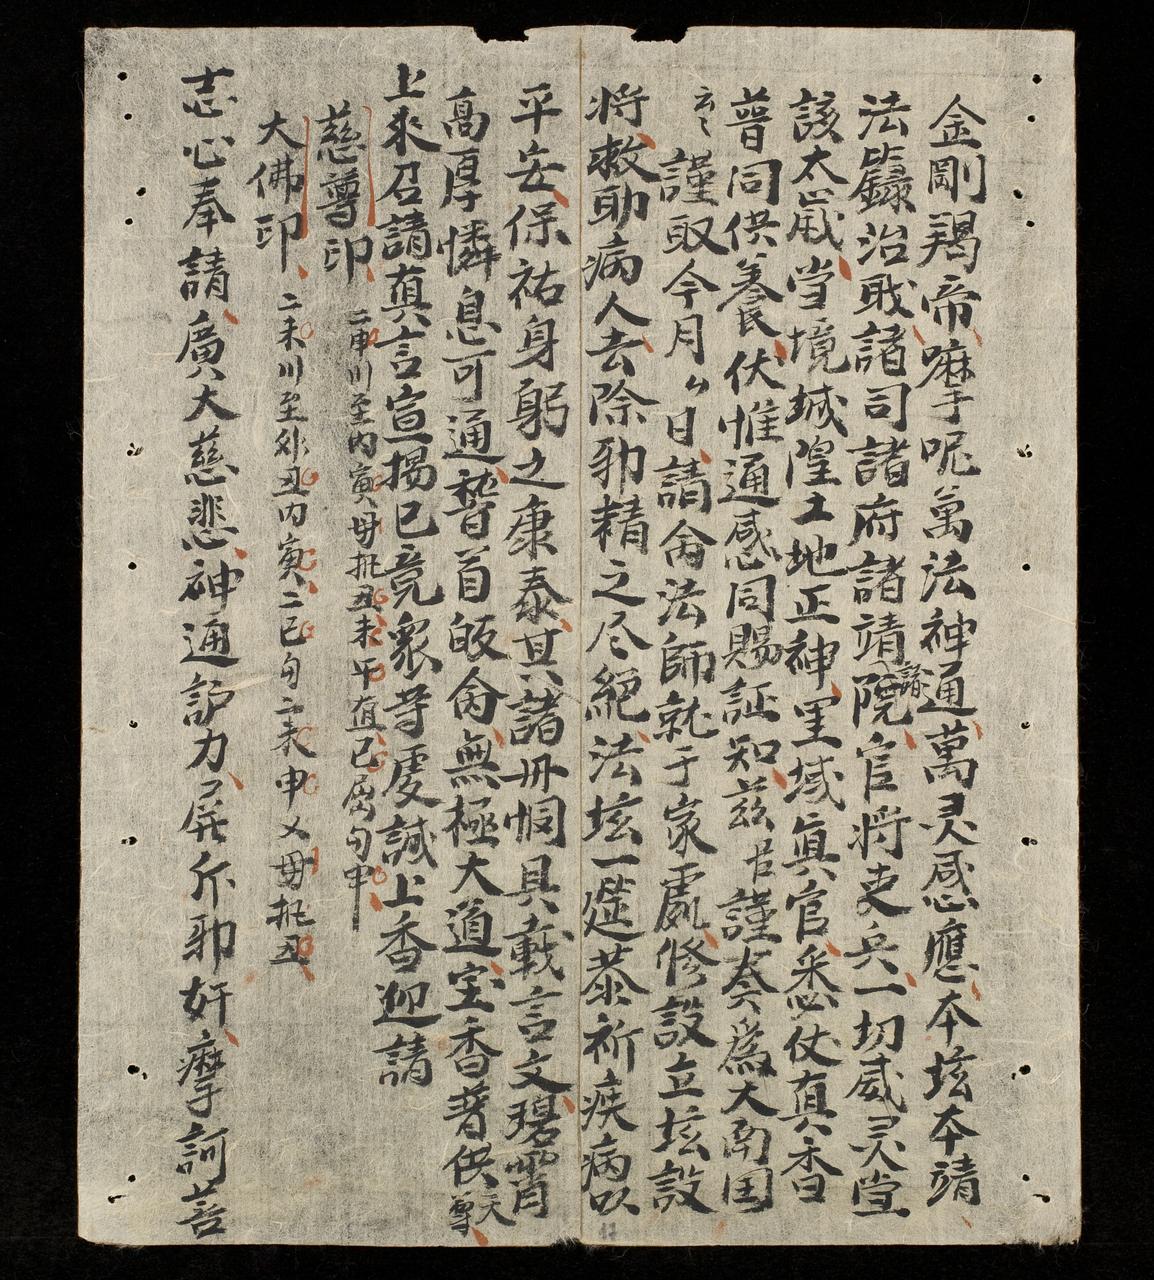 金剛羯帝嚩呢萬法神通萬灵感應本垓本靖
法籙治殿諸司諸府諸靖諸院官将吏兵一切威灵當
該太歲當境城隍土地正神里域真官悉仗真香
普同供養伏惟通感同賜証知兹臣謹奏為大南国
云〻謹取今月厶日請命法師就于家處修設立垓設
将救助病人去除邪精之尽絕法垓一筵恭祈疾病以
平安保祐身躬之康泰其諸冊悃具載言文碧霄
高厚憐息可通稽首皈命無極大道宝香普供天尊
上來召請真言宣揚已竟眾等虔誠上香迎請
慈尊印 二申川至内寅毋挑丑未午直巳居旬申
大佛印 二未川至外丑内寅二巳旬二表申又毋挑丑
志心奉請廣大慈悲神通護力屏斥邪奸摩訶菩